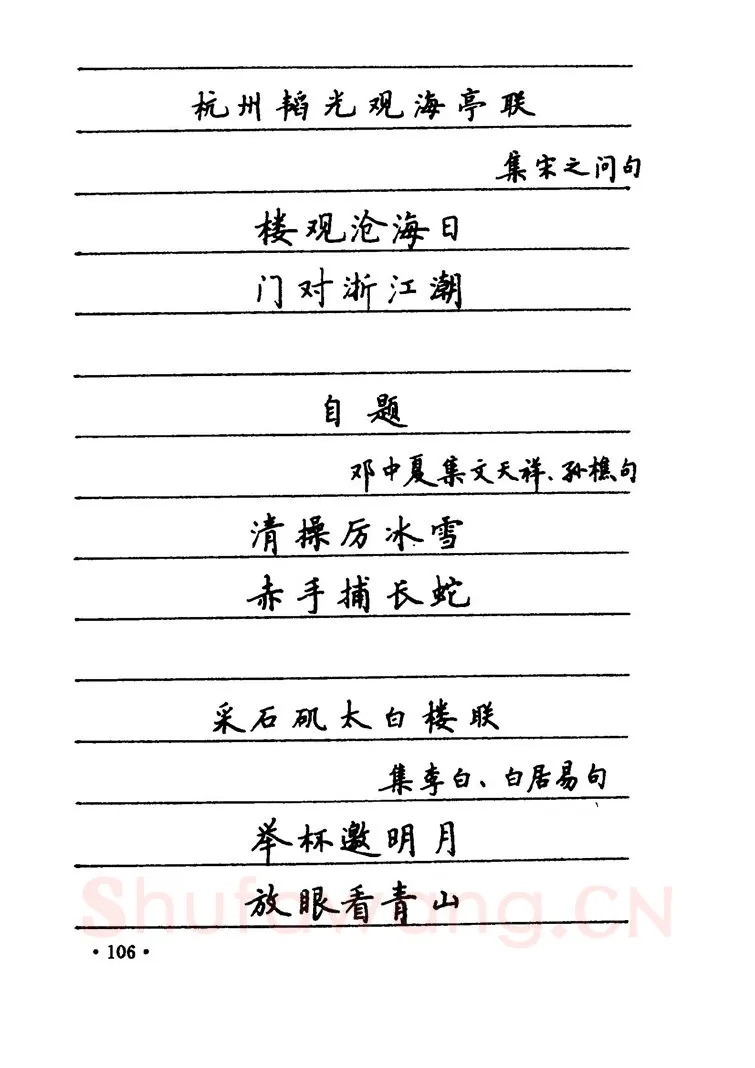 杭州韬光观海亭联
集宋之问句
楼观沧海日
门对浙江潮
自题
邓中夏集文天祥、孙樵句
清操厉冰雪
赤手捕长蛇
采石矶太白楼联
集李白、白居易句
举杯邀明月
放眼看青山
Shufawang.CN
·106·